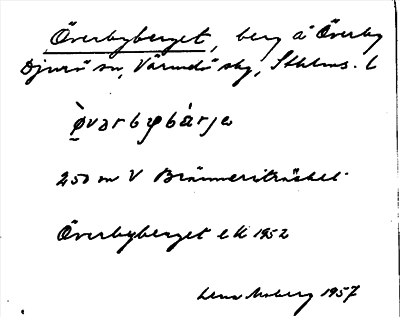 Överbyberget, berg å Överby
Djurö sn, Värmdö skg, Sthlms. l
250 m V Bränneriträsket.
Överbyberget ek 1952
Lena Moberg 1957